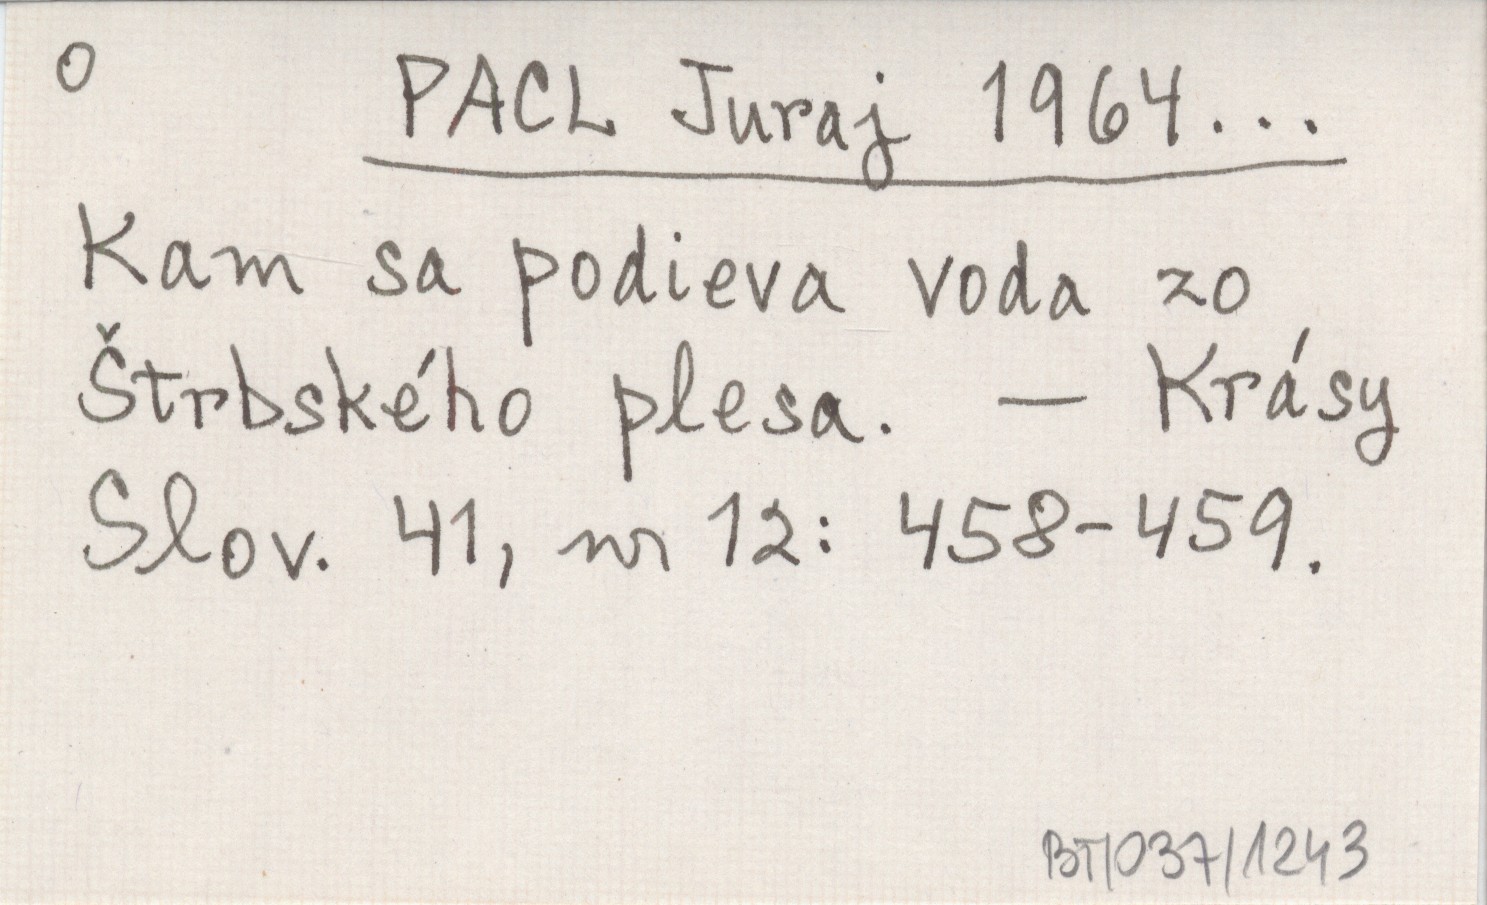 O PACL Juraj 1964...
Kam sa podieva voda zo
Štrbského plesa. — Krásy
Slov. 41, nr 12: 458-459.
BT/037/1243